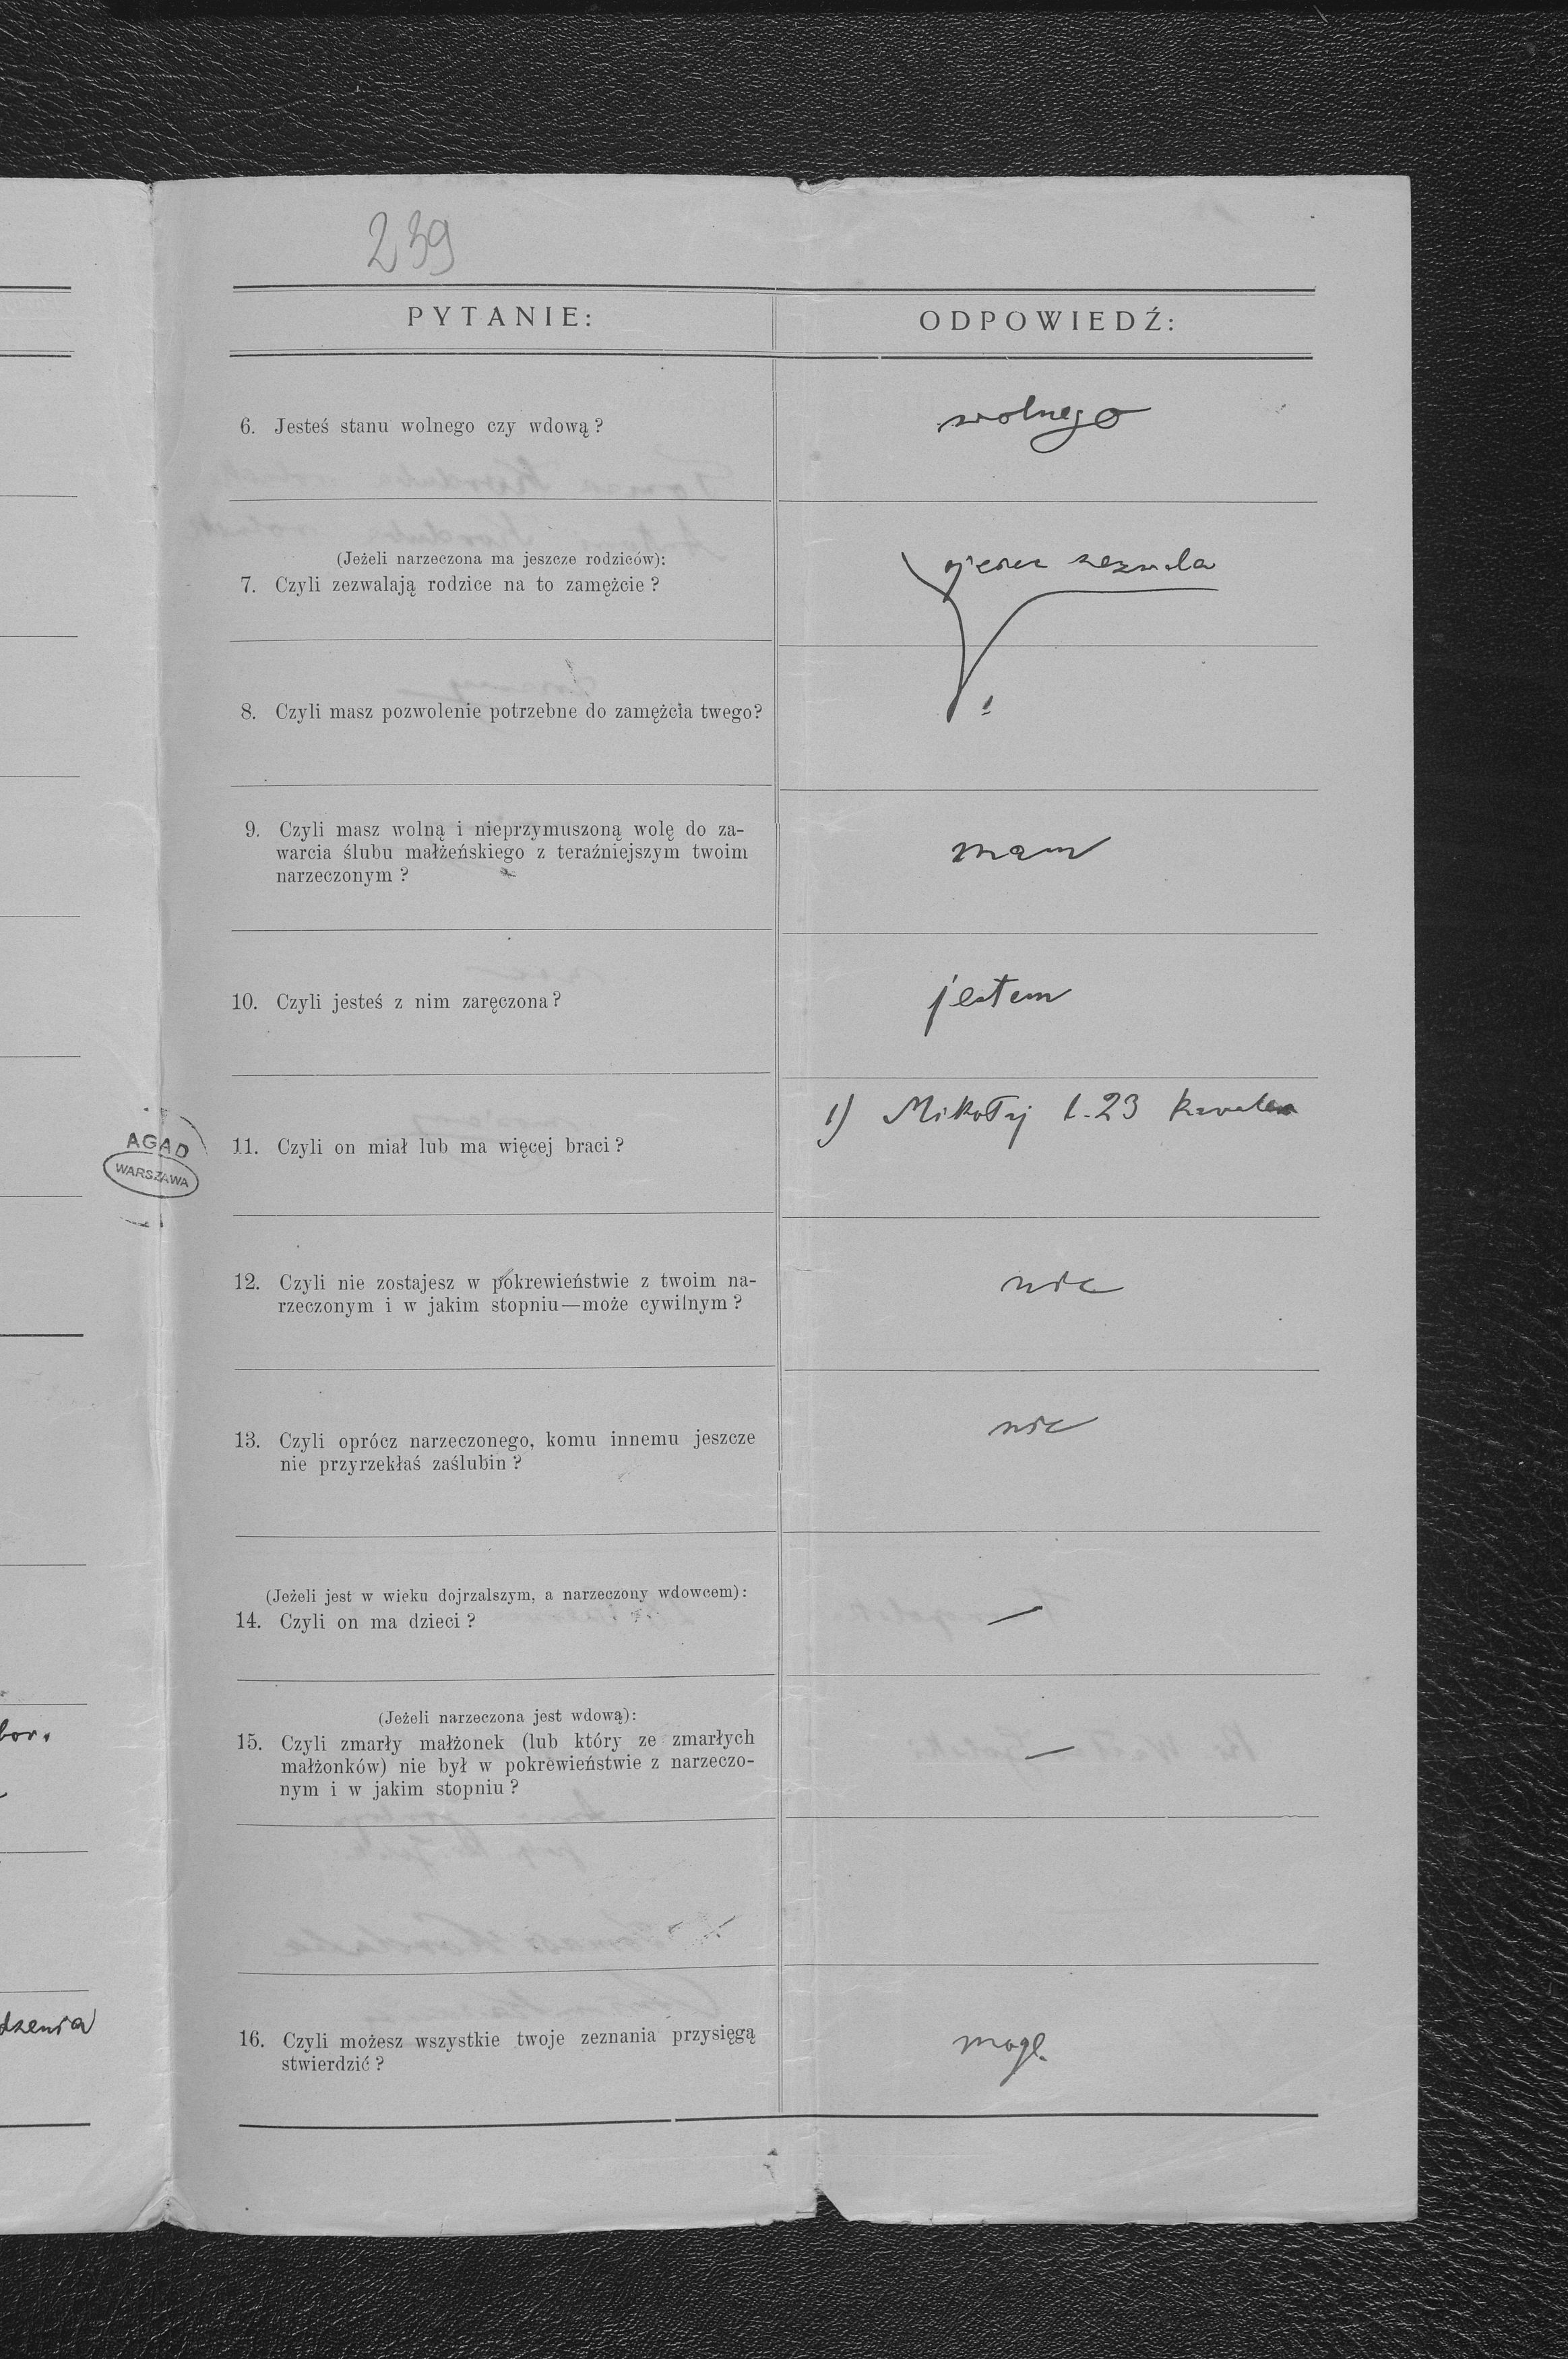 239
PYTANIE:
ODPOWIEDŹ:
6. Jesteś stanu wolnego czy wdową?
wolnego
(Jeżeli narzeczona ma jeszcze rodziców):
7. Czyli zezwalają rodzice na to zamężcie?
ojciec zezwala
8. Czyli masz pozwolenie potrzebne do zamężcia twego?
9. Czyli masz wolną i nieprzymuszoną wolę do za-
warcia ślubu małżeńskiego z teraźniejszym twoim
narzeczonym?
mam
10. Czyli jesteś z nim zaręczona?
jestem
11. Czyli on miał lub ma więcej braci?
1) Mikołaj l. 23 kawaler
12. Czyli nie zostajesz w pokrewieństwie z twoim na-
rzeczonym i w jakim stopniu—może cywilnym?
nie
13. Czyli oprócz narzeczonego, komu innemu jeszcze
nie przyrzekłaś zaślubin?
nie
(Jeżeli jest w wieku dojrzalszym, a narzeczony wdowcem):
14. Czyli on ma dzieci?
—
(Jeżeli narzeczona jest wdową):
15. Czyli zmarły małżonek (lub który ze zmarłych
małżonków) nie był w pokrewieństwie z narzeczo-
nym i w jakim stopniu?
—
16. Czyli możesz wszystkie twoje zeznania przysięgą
stwierdzić?
mogę
AGAD
WARSZAWA